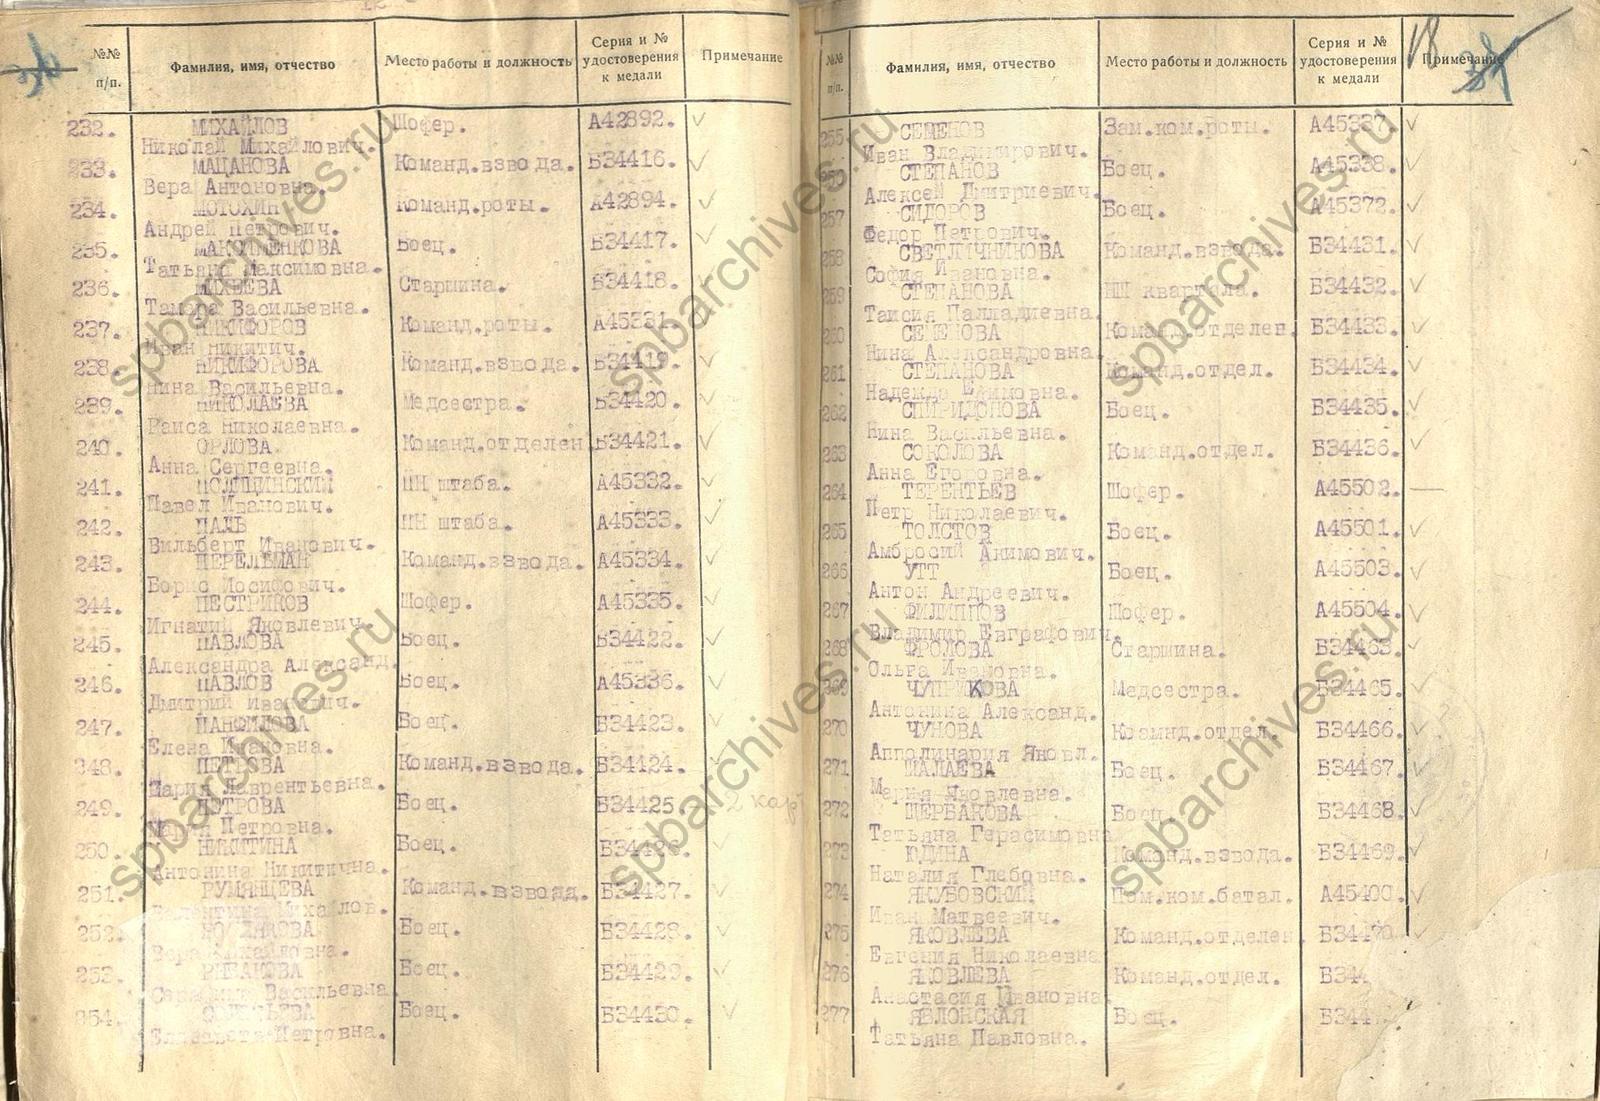 №№ п/п. Фамилия, имя, отчество Место работы и должность Серия и № удостоверения к медали Примечание
232. МИХАЙЛОВ Шофер. А42892.
Николай Михайлович.
233. МАЦАНОВА Команд.взвода. Б34416.
Вера Антоновна.
234. МОТОХИН Команд.роты. А42894.
Андрей Петрович.
235. МАКСИМЕНКОВА Боец. Б34417.
Татьяна Максимовна.
236. МИХЕЕВА Старшина. Б34418.
Тамара Васильевна.
237. НИКИФОРОВ Команд.роты. А45331.
Иван Никитич.
238. НИКИФОРОВА Команд.взвода. Б34419.
Нина Васильевна.
239. НИКОЛАЕВА Медсестра. Б34420.
Раиса Николаевна.
240. ОРЛОВА Команд.отделен. Б34421.
Анна Сергеевна.
241. НН штаба. А45332.
Павел Иванович.
242. ПАЛЬ НН штаба. А45333.
Вильберт Иванович.
243. ПЕРЕЛЬМАН Команд.взвода. А45334.
Борис Иосифович.
244. ПЕСТРИКОВ Шофер. А45335.
Игнатий Яковлевич.
245. ПАВЛОВА Боец. Б34422.
Александра Александ.
246. ПАВЛОВ Боец. А45336.
Дмитрий Иванович.
247. ПАНФИЛОВА Боец. Б34423.
Елена Ивановна.
248. ПЕТРОВА Команд.взвода. Б34424.
Мария Лаврентьевна.
249. ПЕТРОВА Боец. Б34425. 2 кар
Мария Петровна.
250. НИКИТИНА Боец. Б34426.
Антонина Никитична.
251. РУМЯНЦЕВА Команд.взвода. Б34427.
Валентина Михайлов.
252. Боец. Б34428.
Вера Михайловна.
253. РЫБАКОВА Боец. Б34429.
Серафима Васильевна
254. Боец. Б34430.
Елизавета Петровна.
№№ п/п. Фамилия, имя, отчество Место работы и должность Серия и № удостоверения к медали Примечание
18
255 СЕМЕНОВ Зам.ком.роты. А45337.
Иван Владимирович.
256 СТЕПАНОВ Боец. А45338.
Алексей Дмитриевич.
257 СИДОРОВ Боец. А45372.
Федор Петрович.
258 СВЕТЛИЧНИКОВА Команд.взвода. Б34431.
София Ивановна.
259 СТЕПАНОВА НН квартала. Б34432.
Таисия Палладиевна.
260 СЕМЕНОВА Команд.отделен. Б34433.
Нина Александровна.
261 СТЕПАНОВА Команд.отдел. Б34434.
Надежда Ефимовна.
262 СПИРИДОНОВА Боец. Б34435.
Нина Васильевна.
263 СОКОЛОВА Команд.отдел. Б34436.
Анна Егоровна.
264 ТЕРЕНТЬЕВ Шофер. А45502. —
Петр Николаевич.
265 ТОЛСТОВ Боец. А45501.
Амбросий Акимович.
266 УТТ Боец. А45503.
Антон Андреевич.
267 ФИЛИППОВ Шофер. А45504.
Владимир Евграфович.
268 ФРОЛОВА Старшина. Б34463.
Ольга Ивановна.
269 ЧУПРИКОВА Медсестра. Б34465.
Антонина Александ.
270 ЧУНОВА Коамнд.отдел. Б34466.
Апполинария Яковл.
271 ШАЛАЕВА Боец. Б34467.
Мария Яковлевна.
272 ЩЕРБАКОВА Боец. Б34468.
Татьяна Герасимовна
273 ЮДИНА Команд.взвода. Б34469.
Наталия Глебовна.
274 ЯКУБОВСКИЙ Пом.ком.батал. А45400.
Иван Матвеевич.
275 ЯКОВЛЕВА Команд.отделен. Б34470.
Евгения Николаевна
276 ЯКОВЛЕВА Команд.отдел. Б344
Анастасия Ивановна.
277 ЯБЛОНСКАЯ Боец. Б344
Татьяна Павловна.
spbarchives.ru
spbarchives.ru
spbarchives.ru
spbarchives.ru
spbarchives.ru
spbarchives.ru